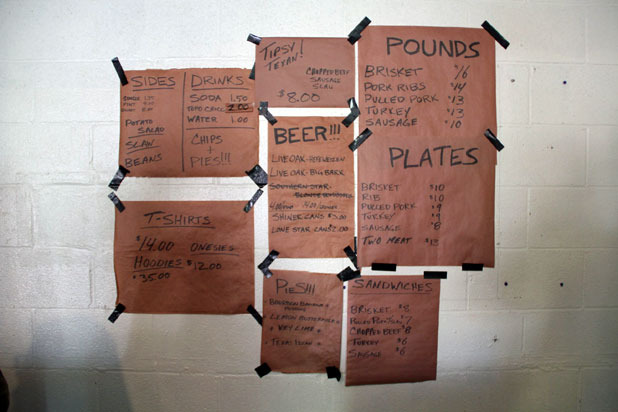 SIDES
POTATO
SALAD
SLAW
BEANS
DRINKS
SODA 1.50
2.00
WATER 1.00
CHIPS
+
PIES!!!
TIPSY
TEXAN!
CHOPPED BEEF
SAUSAGE
SLAW
$8.00
BEER!!!
LIVE OAK-HEFEWEIZEN
LIVE OAK-BIG BARK
SOUTHERN STAR-
SHINER CANS $3.00
LONE STAR CANS $2.00
POUNDS
BRISKET $16
PORK RIBS $14
PULLED PORK $13
TURKEY $13
SAUSAGE $10
PLATES
BRISKET $10
RIB $10
PULLED PORK $9
TURKEY $9
SAUSAGE $8
TWO MEAT $12
T-SHIRTS
$14.00 ONESIES
HOODIES $12.00
$35.00
PIES!!!
BOURBON BANANA
LEMON BUTTERMILK
KEY LIME
TEXAS PECAN
SANDWICHES
BRISKET $8
PULLED PORK $7
CHOPPED BEEF $8
TURKEY $6
SAUSAGE $6